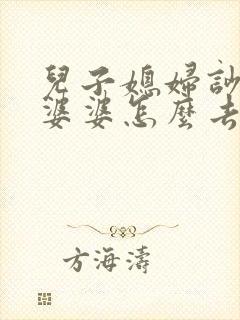 兒子媳婦訟
婆婆怎麼去
方海濤